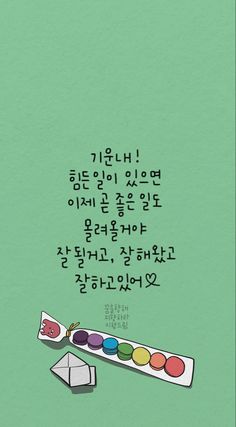 기운내!
힘든일이 있으면
이제 곧 좋은 일도
몰려올거야
잘될거고, 잘해왔고
잘하고있어♡
꿈을향해